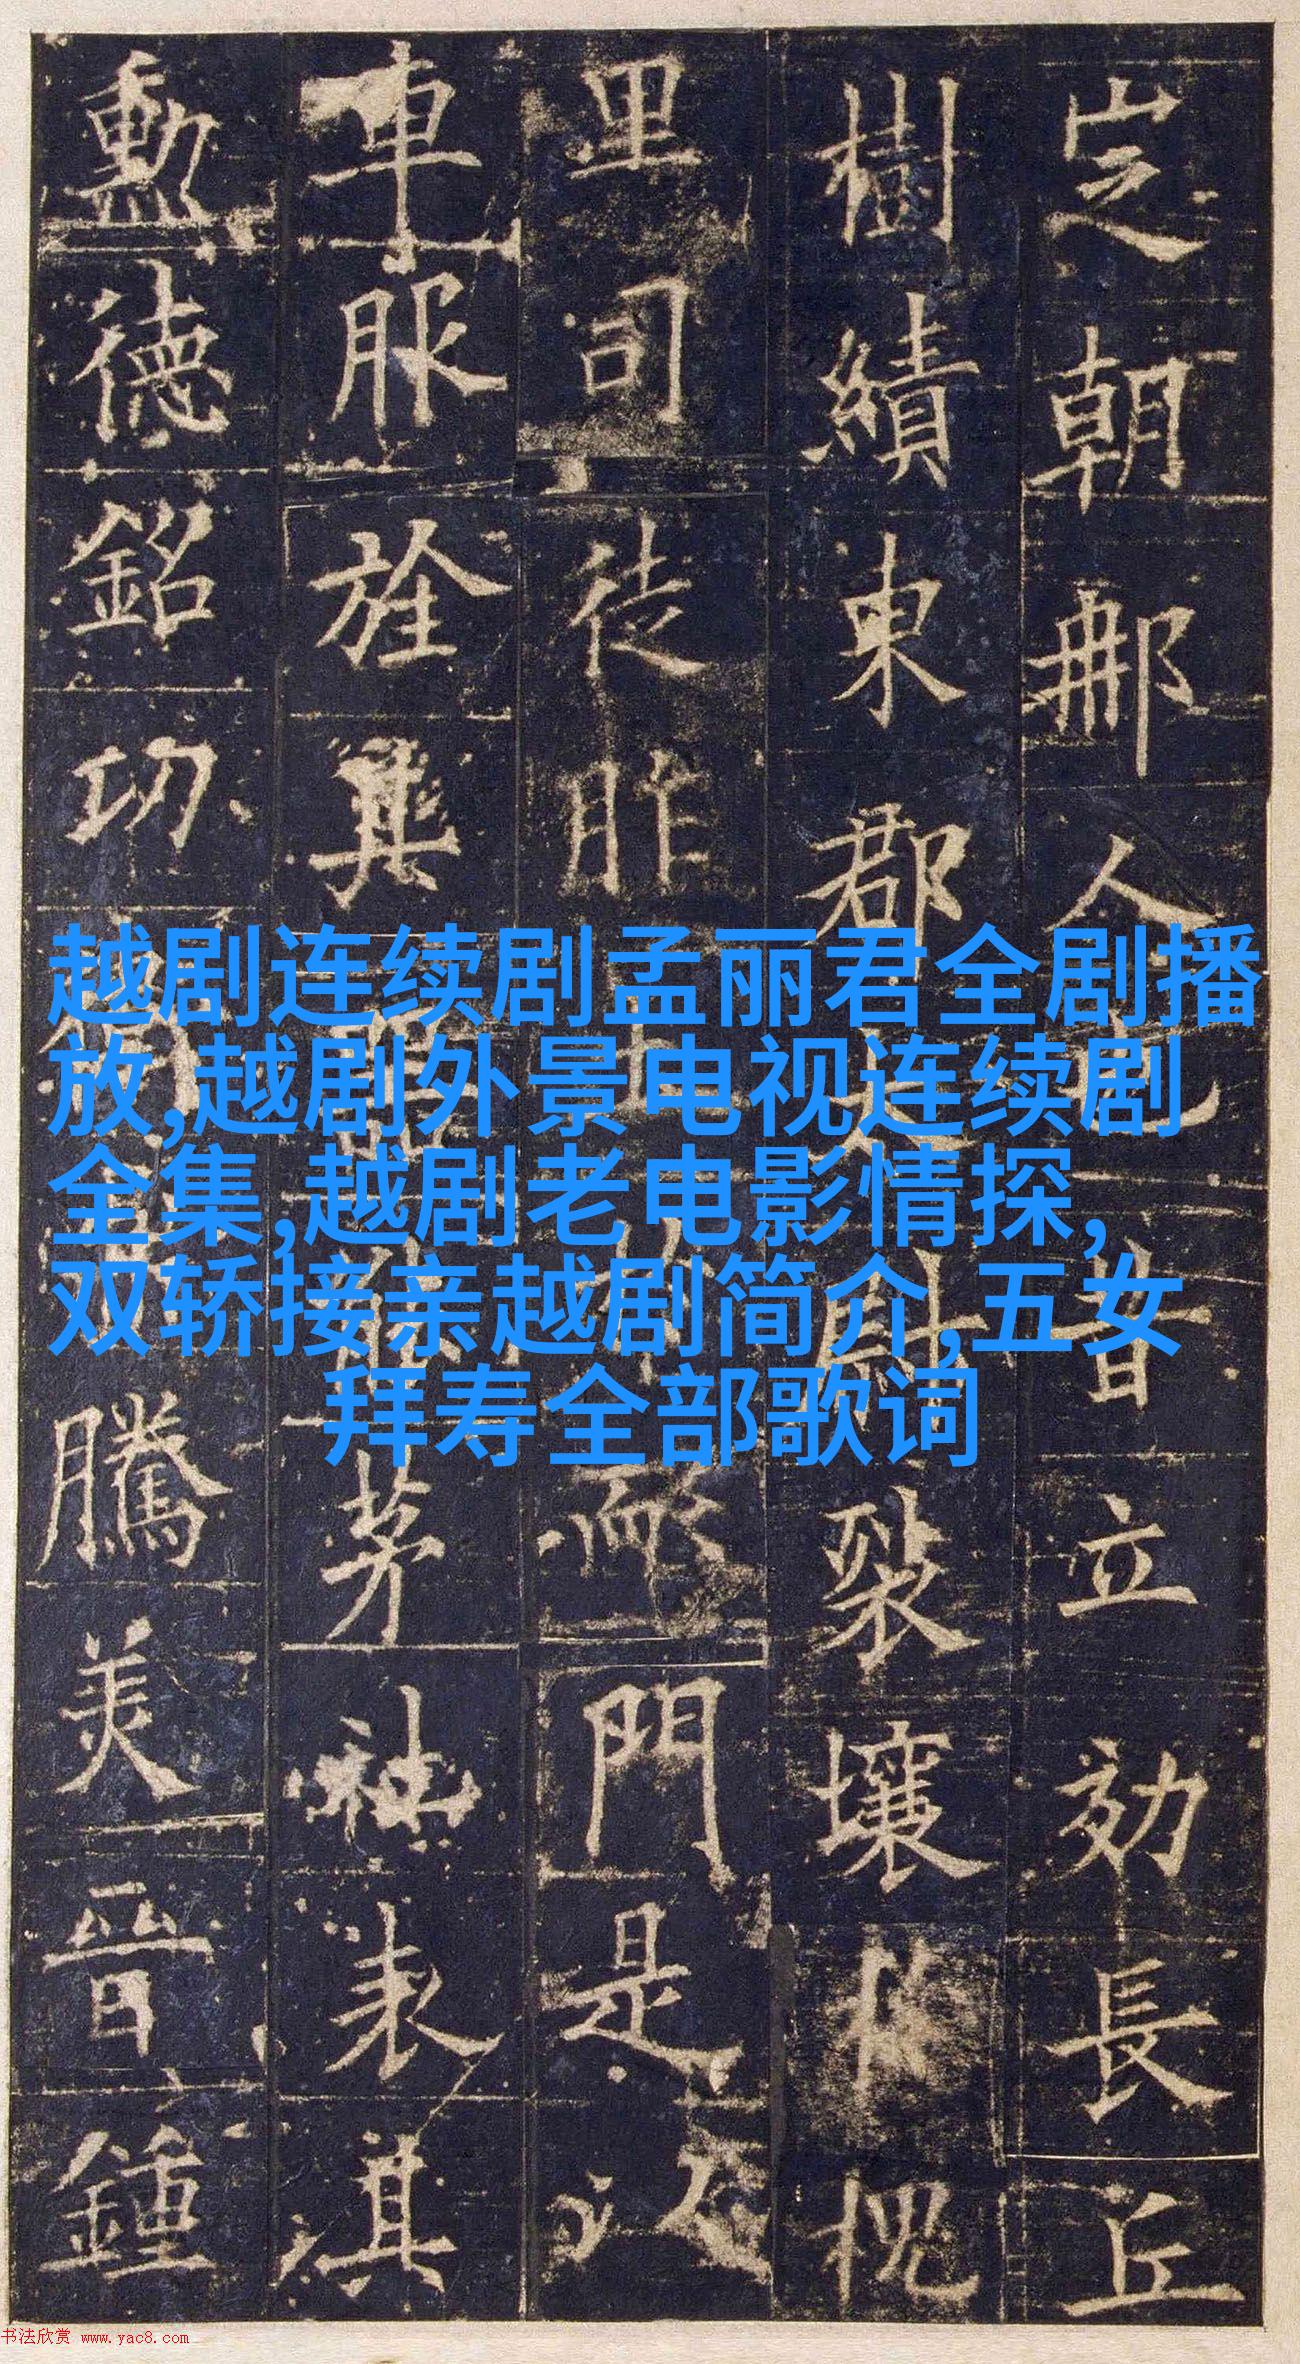 定朝那人也昔立効長丘
樹績東郡太尉裂壤於槐
里司徒胙土於耏門是以
車服旌其器能茅社表其
勳德銘功衛鼎騰美晉鍾
越剧连续剧孟丽君全剧播
放,越剧外景电视连续剧
全集,越剧老电影情探,
双轿接亲越剧简介,五女
拜寿全部歌词
书法欣赏 www.yac8.com